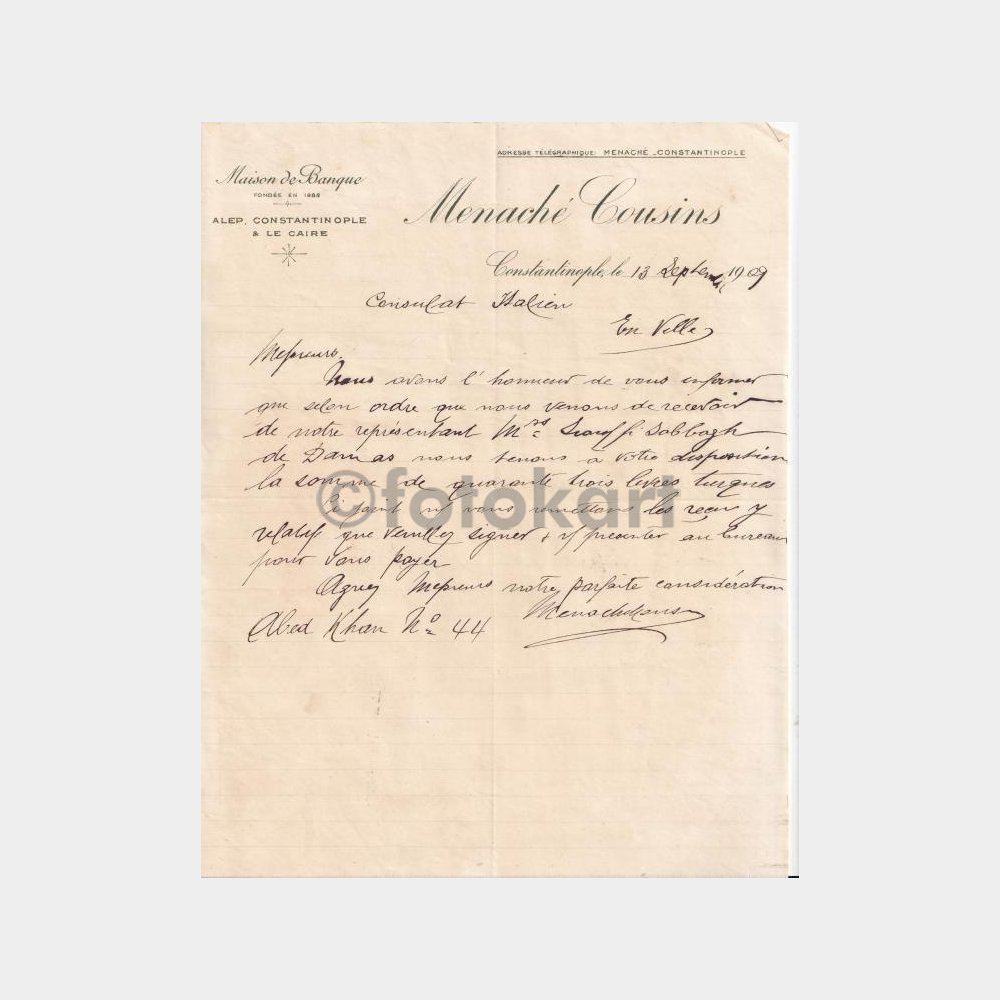 ADRESSE TÉLÉGRAPHIQUE: MENACHÉ _CONSTANTINOPLE
Maison de Banque
FONDÉE EN 1888
ALEP, CONSTANTINOPLE
& LE CAIRE
Menaché Cousins
Constantinople, le 13 Septembre 1909
Consulat Italien
En Ville
Messieurs.
Nous avons l'honneur de vous informer
que selon ordre que nous venons de recevoir
de notre représentant Mrs Sabbagh
de Damas nous tenons à votre disposition
la somme de quarante trois livres turques
©fotokart
Ci joint vous remettons les reçu y
relatif que veuillez signer & présenter au bureau
pour vous payer
Agréez Messieurs notre parfaite considération
Abed Khan No 44